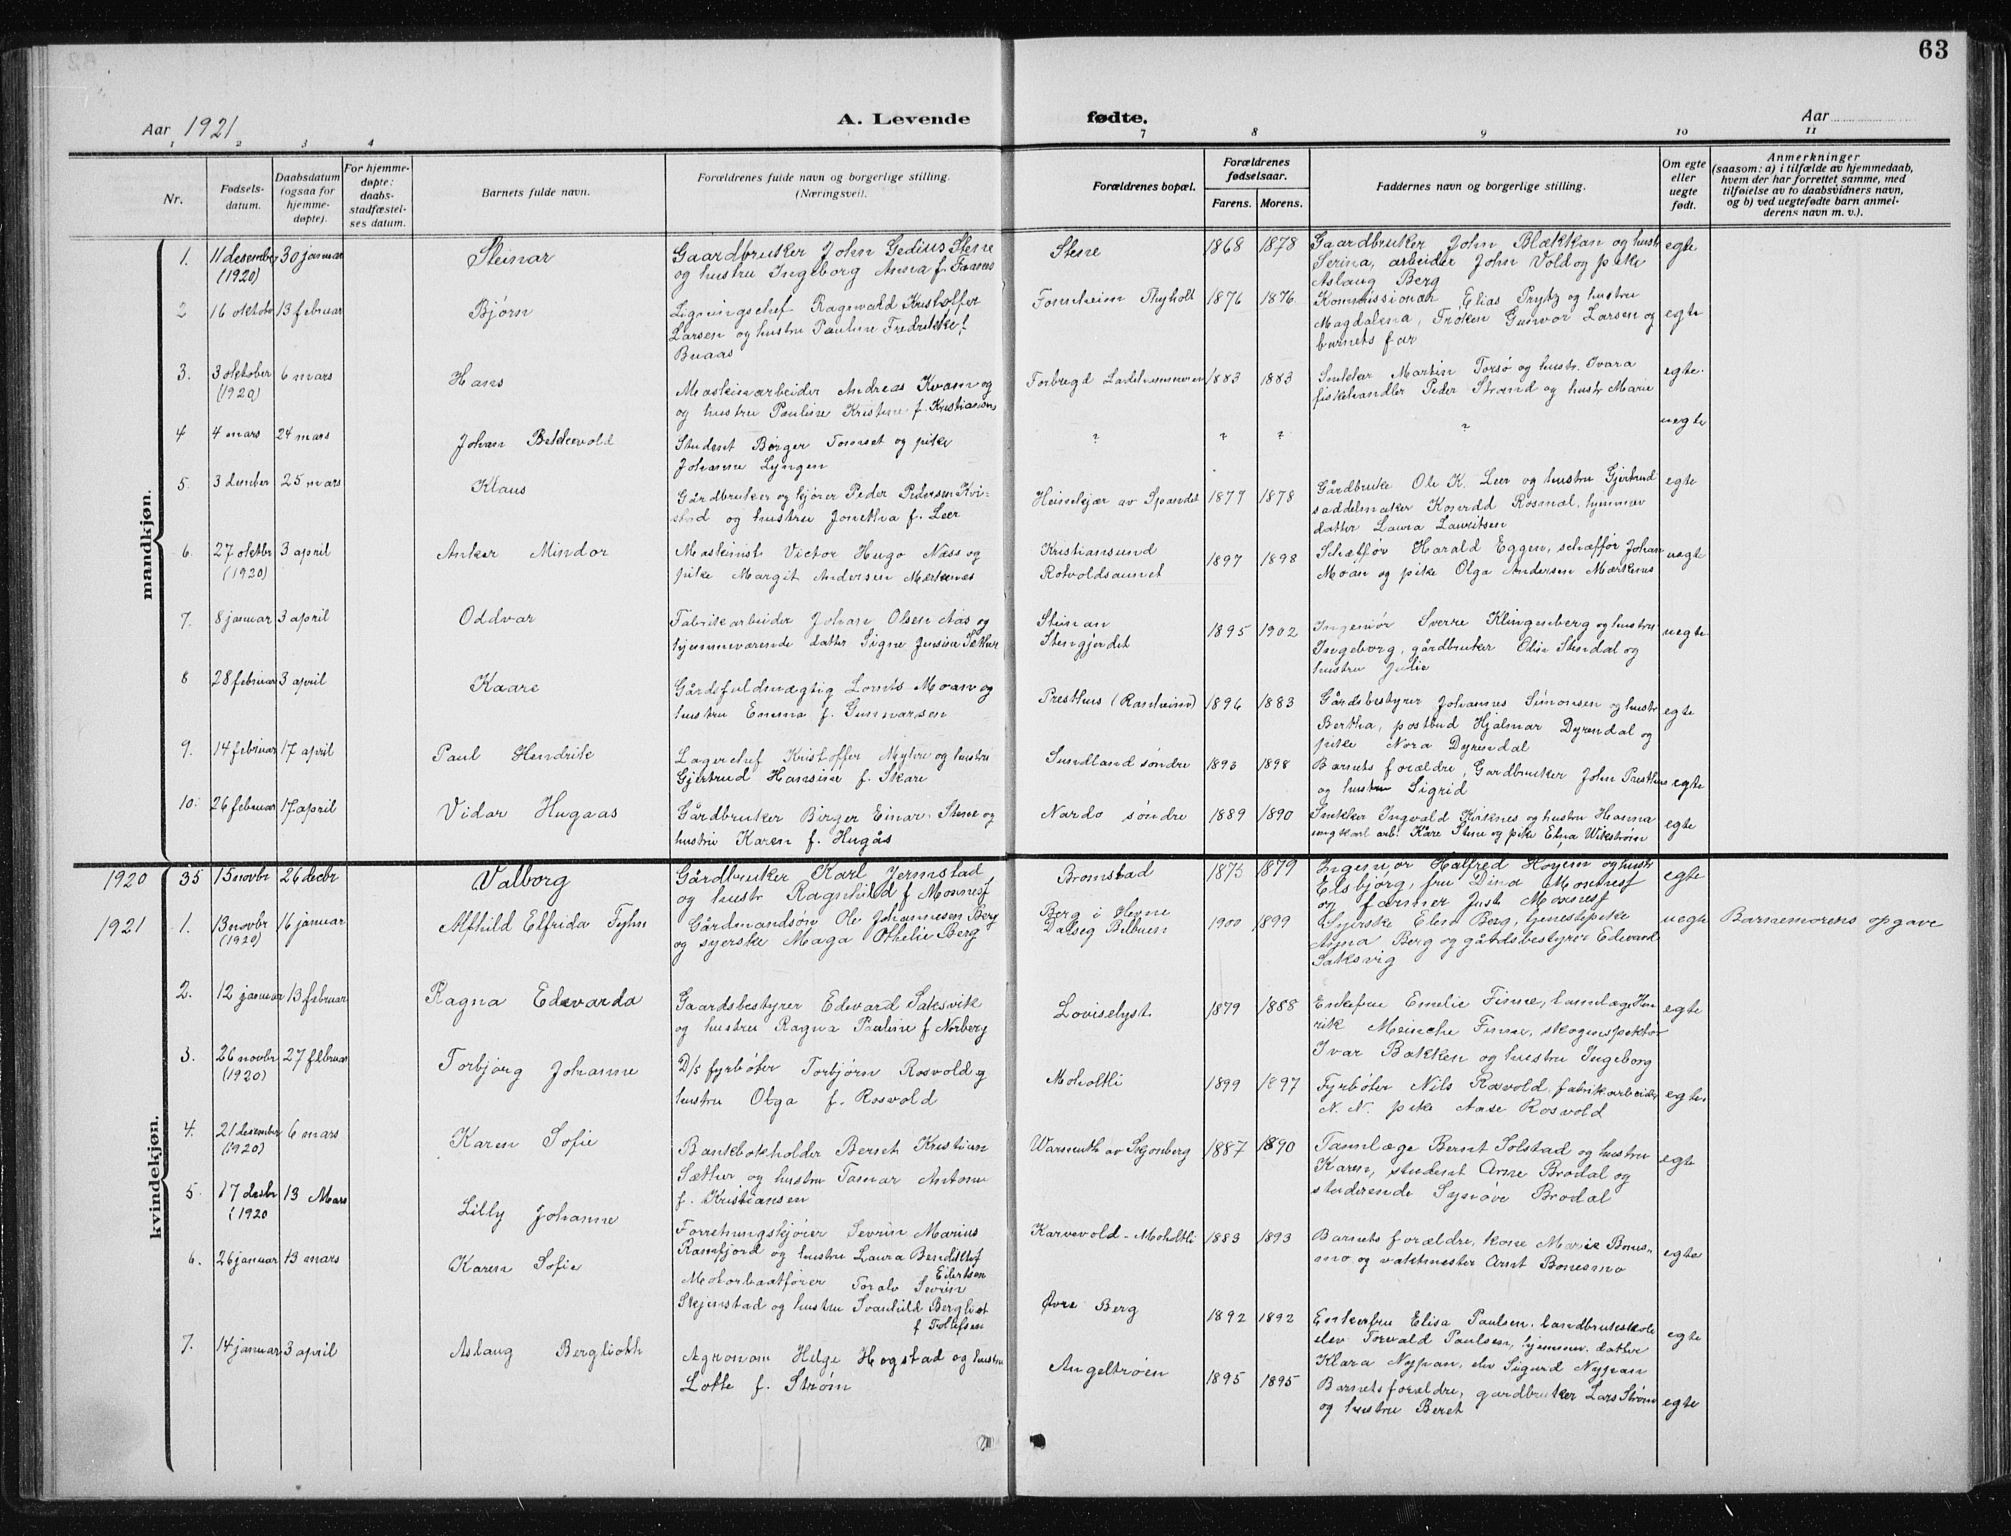 63
Aar 1921 A. Levende fødte. Aar
1 2 3 4 5 6 7 8 9 10 11
Nr.
Fødsels-
datum.
Daabsdatum
(ogsaa for
hjemme-
døpte).
For hjemme-
døpte:
daabs-
stadfæstel-
ses datum.
Barnets fulde navn.
Forældrenes fulde navn og borgerlige stilling.
(Næringsvei).
Forældrenes bopæl.
Forældrenes
fødselsaar.
Farens. Morens.
Faddernes navn og borgerlige stilling.
Om egte
eller
uegte
født.
Anmerkninger
(saasom: a) i tilfælde av hjemmedaab,
hvem der har forrettet samme, med
tilføielse av to daabsvidners navn,
og b) ved uegtefødte barn anmel-
derens navn m. v.).
mandkjøn.
1. 11 desember 30 januar Steinar Gaardbruker John Gedius Stene Stene 1868 1878 Gaardbruker John Blækkan og hustr egte
(1920) og hustru Ingeborg Anna f. Serina, arbeider John Vold og pike
Aslaug Berg
2 16 oktobr 13 februar Bjørn Ligningschef Ragnvald Kristoffer Thyholt 1876 1876 Kommissionær Elias Prytz og hustru
Larsen og hustru Pauline Fredrikke f. Magdalena, Frøken Gunvor Larsen og egte
Buaas barnets far
3. 3 oktober 6 mars Hans Maskinarbeider Andreas Kvam og Forbregd Ladehammeren 1883 1883 Snekker Martin Torsø og hustr. Ivara egte.
(1920) og hustru Pauline Kristine f. Kristiansen fiskehandler Peder Strand og hustr Marie
4 4 mars 24 mars Johan Student Børger Tomset og pike ? ? ? ? uegte
Johanne Lyngen
5. 3 december 25 mars Klaus Gårdbruker og kjører Peder Pedersen Kvi- Heinskjær av Spandet 1877 1878 Gårdbruke Ole K. Leer og hustru Gjertrud egte
stad og hustru Jonetha f. Leer saddelmaker Konrad Rosmæl, hjemmev
datter Laura Lauritsen
6. 27 oktbr 3 april Anker Mindor Maskinist Victor Hugo Næss og Kristiansund 1897 1898 Schæffør Harald Eggen, schæffør Johan uegte
(1920) pike Margit Andersen Mærkenæs Rotvoldsaunet Moan og pike Olga Andersen Mærkenes
7. 8 januar 3 april Oddvar Fabrikarbeider Johan Olsen Aas og Steinan 1895 1902 Ingeniør Sverre Klingenberg og hustru uegte
hjemmeværende datter Signe Jensine Stengjerdet Ingeborg, gårdbruker Odin Stendal og
hustru Julie
8 28 februar 3 april Kaare Gårdsfuldmægtig Lorents Moan og Presthus (Ranheim) 1896 1883 Gårdsbestyrer Johannes Simonsen og hustr egte
hustru Emma f. Gunnarsen Bertha, postbud Hjalmar Dyrendal og
pike Nora Dyrendal
9. 14 februar 17 april Paul Hendrik Lagerchef Kristoffer Myhre og hustru Sundland søndre 1893 1898 Barnets forældre, Gardbruker John Presthus egte
Gjertrud Hansine f. Skare og hustru Sigrid
10. 26 februar 17 april Vidar Hugaas Gårdbruker Birger Einar Stene og Nardo søndre 1889 1890 Snekker Ingvald Kirknes og hustru Hanna
hustru Karen f. Hugås ungkarl arb. Kåre Stene og pike Etna Wikstrøm egte
1920 35 15 novbr 26 decbr Valborg Gårdbruker Karl Jermstad Bromstad 1875 1879 Ingeniør Halfred Høyem og hustr egte
og hustr Ragnhild f Moxness Elsbjørg, fru Dina Moxness
og farmer Just Moxness
1921 1. 13 novbr 16 januar Alfhild Elfrida Tyhn Gårdmandsøn Ole Johannesen Berg Berg i Hevne 1900 1899 Syerske Elen Berg, tjenestepike uegte Barnemorens opgave
(1920) og syerske Maga Othelie Berg Dalseg Anna Berg og gårdsbestyrer Edevard
Saksvig
kvindekjøn.
2. 12 januar 13 februar Ragna Edevarda Gaardsbestyrer Edevard Saksvik Loviselyst 1879 1888 Enkefru Emelie Finne, tannlæge Hen- egte
og hustru Ragna Pauline f Norberg rik Meincke Finne, skoginspektør
Ivar Bakken og hustru Ingeborg
3. 26 novbr 27 februar Torbjørg Johanne D/s fyrbøter Torbjørn Rosvold og Moholtli 1899 1897 Fyrbøter Nils Rosvold, fabrikarbeider egte.
(1920) hustru Olga f. Rosvold N. N. pike Aase Rosvold
4. 21 desember 6 mars Karen Sofie Bankbokholder Bernt Kristian Warmuth av Skonberg 1887 1890 Tannlæge Bernt Solstad og hustru egte
(1920) Sæther og hustru Tamar Antone Karen, student Arne Brodal og
f. Kristiansen studerende Synøve Brodal
5. 17 desbr 13 Mars Lilly Johanne Forretningskjører Sevrin Marius Karvevold-Moholtli 1883 1893 Barnets forældre, kone Marie Bones- egte
(1920 Ramfjord og hustru Laura Bendikte f mo og vaktmester Arnt Bonesmo
Eilertsen
6. 26 januar 13 mars Karen Sofie Motorbaatfører Toralv Sevrin Øvre Berg 1892 1892 Enkefru Elisa Paulsen, landbrukskole egte
Skjenstad og hustru Svanhild Bergliot elev Torvald Paulsen, hjemmev. datter
f Tollefsen Klara Nypan, elev Sigurd Nypan
7. 14 januar 3 april Aslaug Bergliotth Agronom Helge Hogstad og hustru Angeltrøen 1895 1895 Barnets forældre, gardbruker Lars Strøm egte
Lotte f. Strøm og hustru Beret